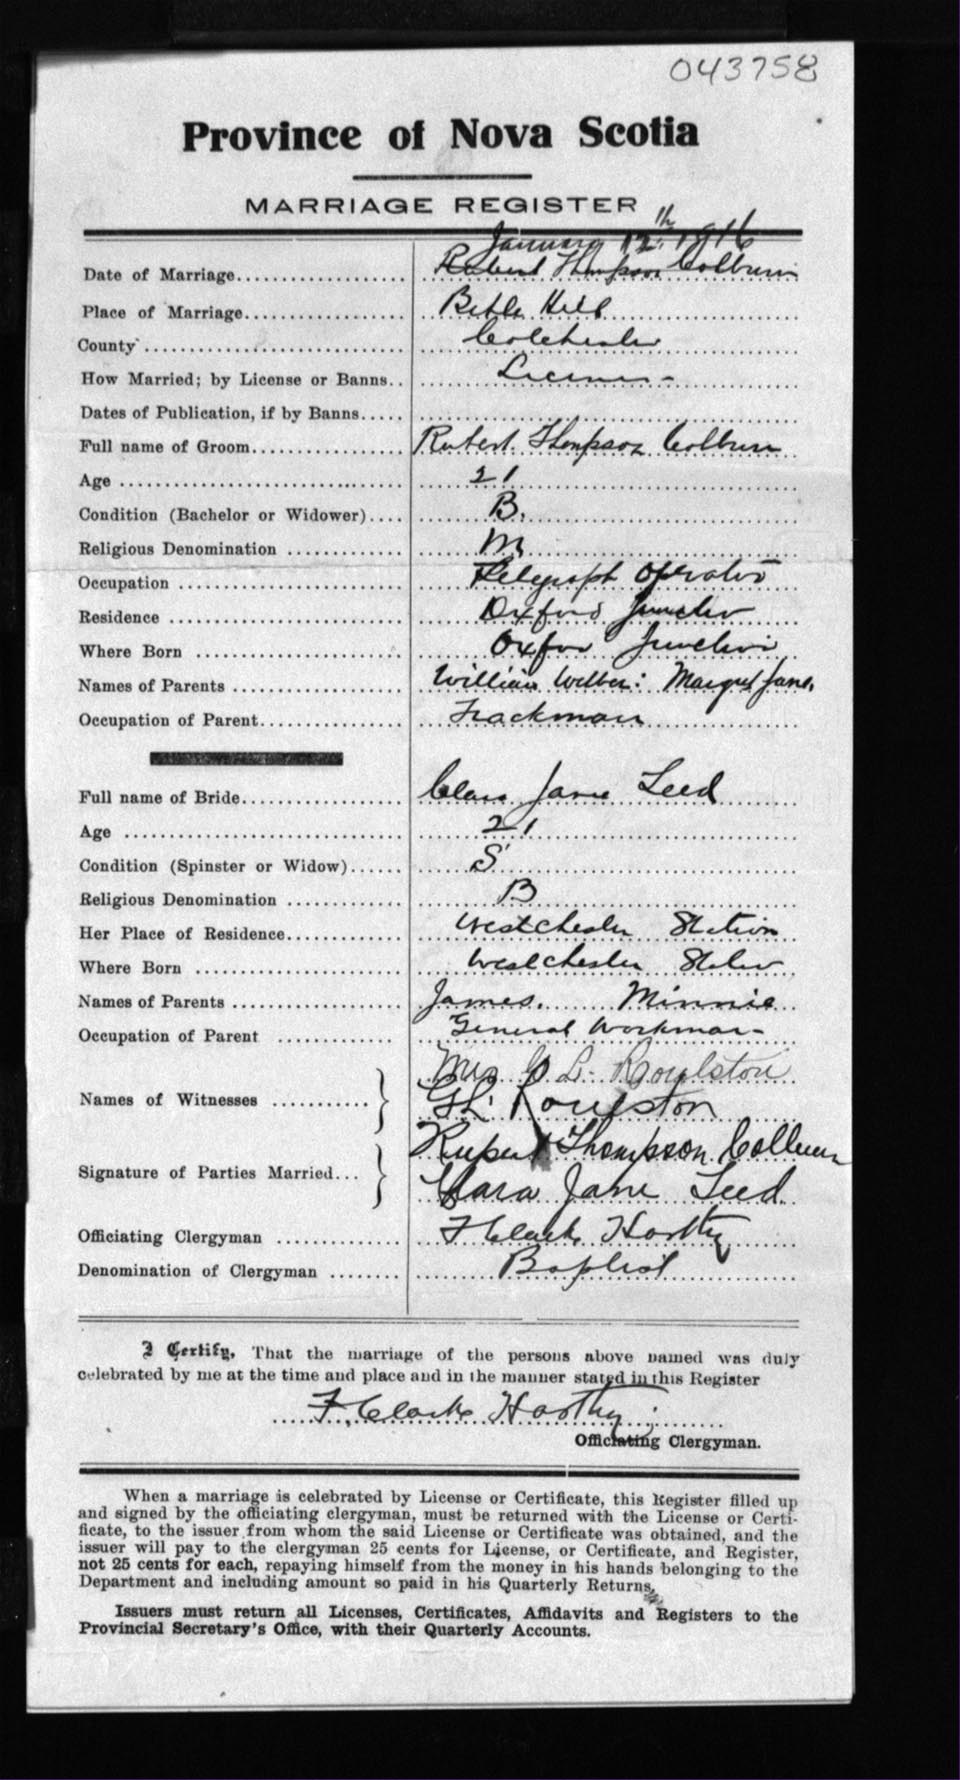 043758
Province of Nova Scotia
MARRIAGE REGISTER
January 12th 1916
Date of Marriage Robert Thompson Colburn
Place of Marriage Bible Hill
County Colchester
How Married; by License or Banns License
Dates of Publication, if by Banns
Full name of Groom Robert Thompson Colburn
Age 21
Condition (Bachelor or Widower) B.
Religious Denomination M
Occupation Telegraph Operator
Residence Oxford Junction
Where Born Oxford Junction
Names of Parents William Wilber: Margret Jane.
Occupation of Parent Trackman
Full name of Bride Clara Jane Teed
Age 21
Condition (Spinster or Widow) S
Religious Denomination B
Her Place of Residence Westchester Station
Where Born Westchester Station
Names of Parents James. Minnie
Occupation of Parent General Workman
Mrs G L. Roulston
Names of Witnesses } G L. Roulston
Rupert Thompson Colburn
Signature of Parties Married } Clara Jane Teed
Officiating Clergyman F Clarke Hartley
Denomination of Clergyman Baptist
I Certify, That the marriage of the persons above named was duly
celebrated by me at the time and place and in the manner stated in this Register
F. Clarke Hartley
Officiating Clergyman.
When a marriage is celebrated by License or Certificate, this Register filled up
and signed by the officiating clergyman, must be returned with the License or Certi-
ficate, to the issuer from whom the said License or Certificate was obtained, and the
issuer will pay to the clergyman 25 cents for License, or Certificate, and Register,
not 25 cents for each, repaying himself from the money in his hands belonging to the
Department and including amount so paid in his Quarterly Returns.
Issuers must return all Licenses, Certificates, Affidavits and Registers to the
Provincial Secretary's Office, with their Quarterly Accounts.